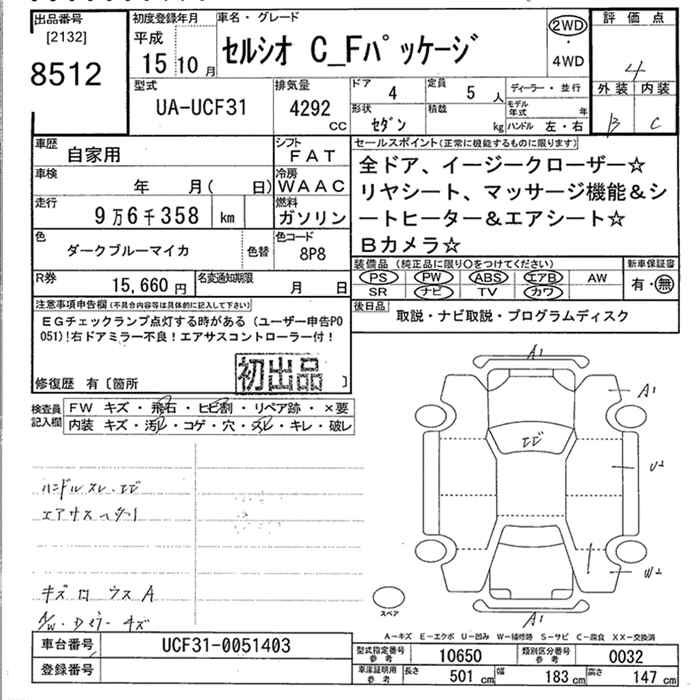 出品番号
[2132]
8512
初度登録年月
平成
15 10 月
車名・グレード
セルシオ C_Fパッケージ
2WD
・
4WD
評価点
4
外装 内装
B C
型式
UA-UCF31
排気量
4292 CC
ドア
4
定員
5 人
形状
セダン
積載
kg
ディーラー・並行
モデル年式 年
ハンドル 左・右
車歴
自家用
シフト
FAT
車検
年 月( 日)
冷房
WAAC
走行
9万6千358 km
燃料
ガソリン
色
ダークブルーマイカ
色替
色コード
8P8
R券
15,660円
名変通知期限
月 日
セールスポイント(正常に機能するものに限ります)
全ドア、イージークローザー☆
リヤシート、マッサージ機能&シ
ートヒーター&エアシート☆
Bカメラ☆
装備品(純正品に限り〇をつけてください)
PS PW ABS エアB AW
SR ナビ TV カワ
新車保証書
有・無
後日品
取説・ナビ取説・プログラムディスク
注意事項申告欄(不具合内容等は具体的に記入して下さい)
EGチェックランプ点灯する時がある(ユーザー申告P0
051)!右ドアミラー不良!エアサスコントローラー付!
初出品
修復歴 有〔箇所 〕
検査員
記入欄
FW キズ・飛石・ヒビ割・リペア跡・×要
内装 キズ・汚レ・コゲ・穴・スレ・キレ・破レ
ハンドルスレ
エアサス
キズ ウスA
キズ
A1
A1
U2
W2
A1
スペア
A-キズ E-エクボ U-凹み W-補修跡 S-サビ C-腐食 XX-交換済
車台番号
UCF31-0051403
登録番号
型式指定番号
参考
10650
類別区分番号
参考
0032
車庫証明用
参考
長さ
501 cm
幅
183 cm
高さ
147 cm